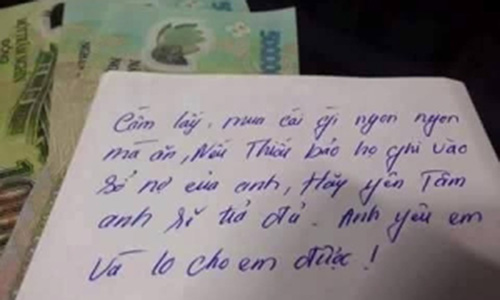 MỘT TRĂM NGHÌN
ĐỒNG
50000
Cầm lấy, mua cái gì ngon ngon
mà ăn, Nếu Thiếu bảo họ ghi vào
sổ nợ của anh, Hãy yên Tâm
anh sẽ trả đủ. Anh yêu em
Và lo cho em được!